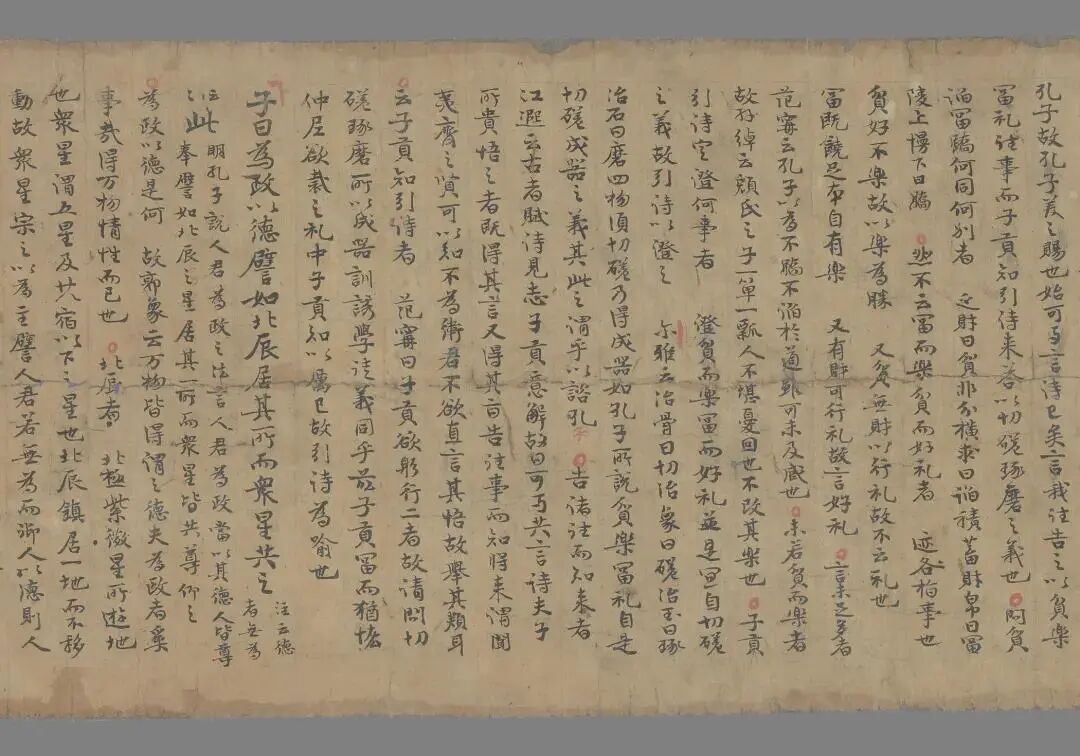 孔子故孔子美之賜也始可与言詩已矣言我往告之以貧樂
冨礼往事而子貢知引詩来荅以切磋琢磨之義也 問貧
謟冨驕何同何別者 乏財曰貧非分横求曰謟積蓄財帛曰冨
陵上慢下曰驕 然不云冨而樂貧而好礼者 亦各指事也
貧好不樂故以樂為勝 又貧無財以行礼故不云礼也
冨既饒足本自有樂 又有財可行礼故言好礼
范寗云孔子以為不驕不謟於道雖可未及臧也 未若貧而樂者
故孫綽云顔氏之子一簞一瓢人不堪憂回也不改其樂也 子貢
引詩宜證何事者 證貧而樂冨而好礼並是冝自切磋
之義故引詩以證之 尔雅云治骨曰切治象曰磋治玉曰琢
治石曰磨四物須切磋乃得成器如孔子所說貧樂冨礼自是
切磋成器之義其此之謂乎以諮孔子 告諸往而知来者
江遐云古者賦詩見志子貢意解故曰可与共言詩夫子
所貴悟之者既得其言又得其旨告往事而知将来謂聞
夷齊之賢可以知不為衛君不欲直言其悟故舉其類耳
云子貢知引詩者 范寗曰子貢欲躬行二者故請問切
磋琢磨所以成器訓誘學徒義同乎茲子貢冨而猶恡
仲尼欲裁之礼中子貢知以厲己故引詩為喻也
子曰為政以德譬如北辰居其所而衆星共之
注云德者無為
此明孔子說人君為政之法言人君為政當以其德人皆尊
之奉譬如北辰之星居其一所而衆星皆共尊仰之
為政以德是何 故郭象云万物皆得謂之德夫為政者奚
事哉得万物情性而已也 北辰者 北極紫微星所遊地
也衆星謂五星及廿八宿以下之星也北辰鎮居一地而不移
動故衆星宗之以為主譬人君若無為而御人以德則人